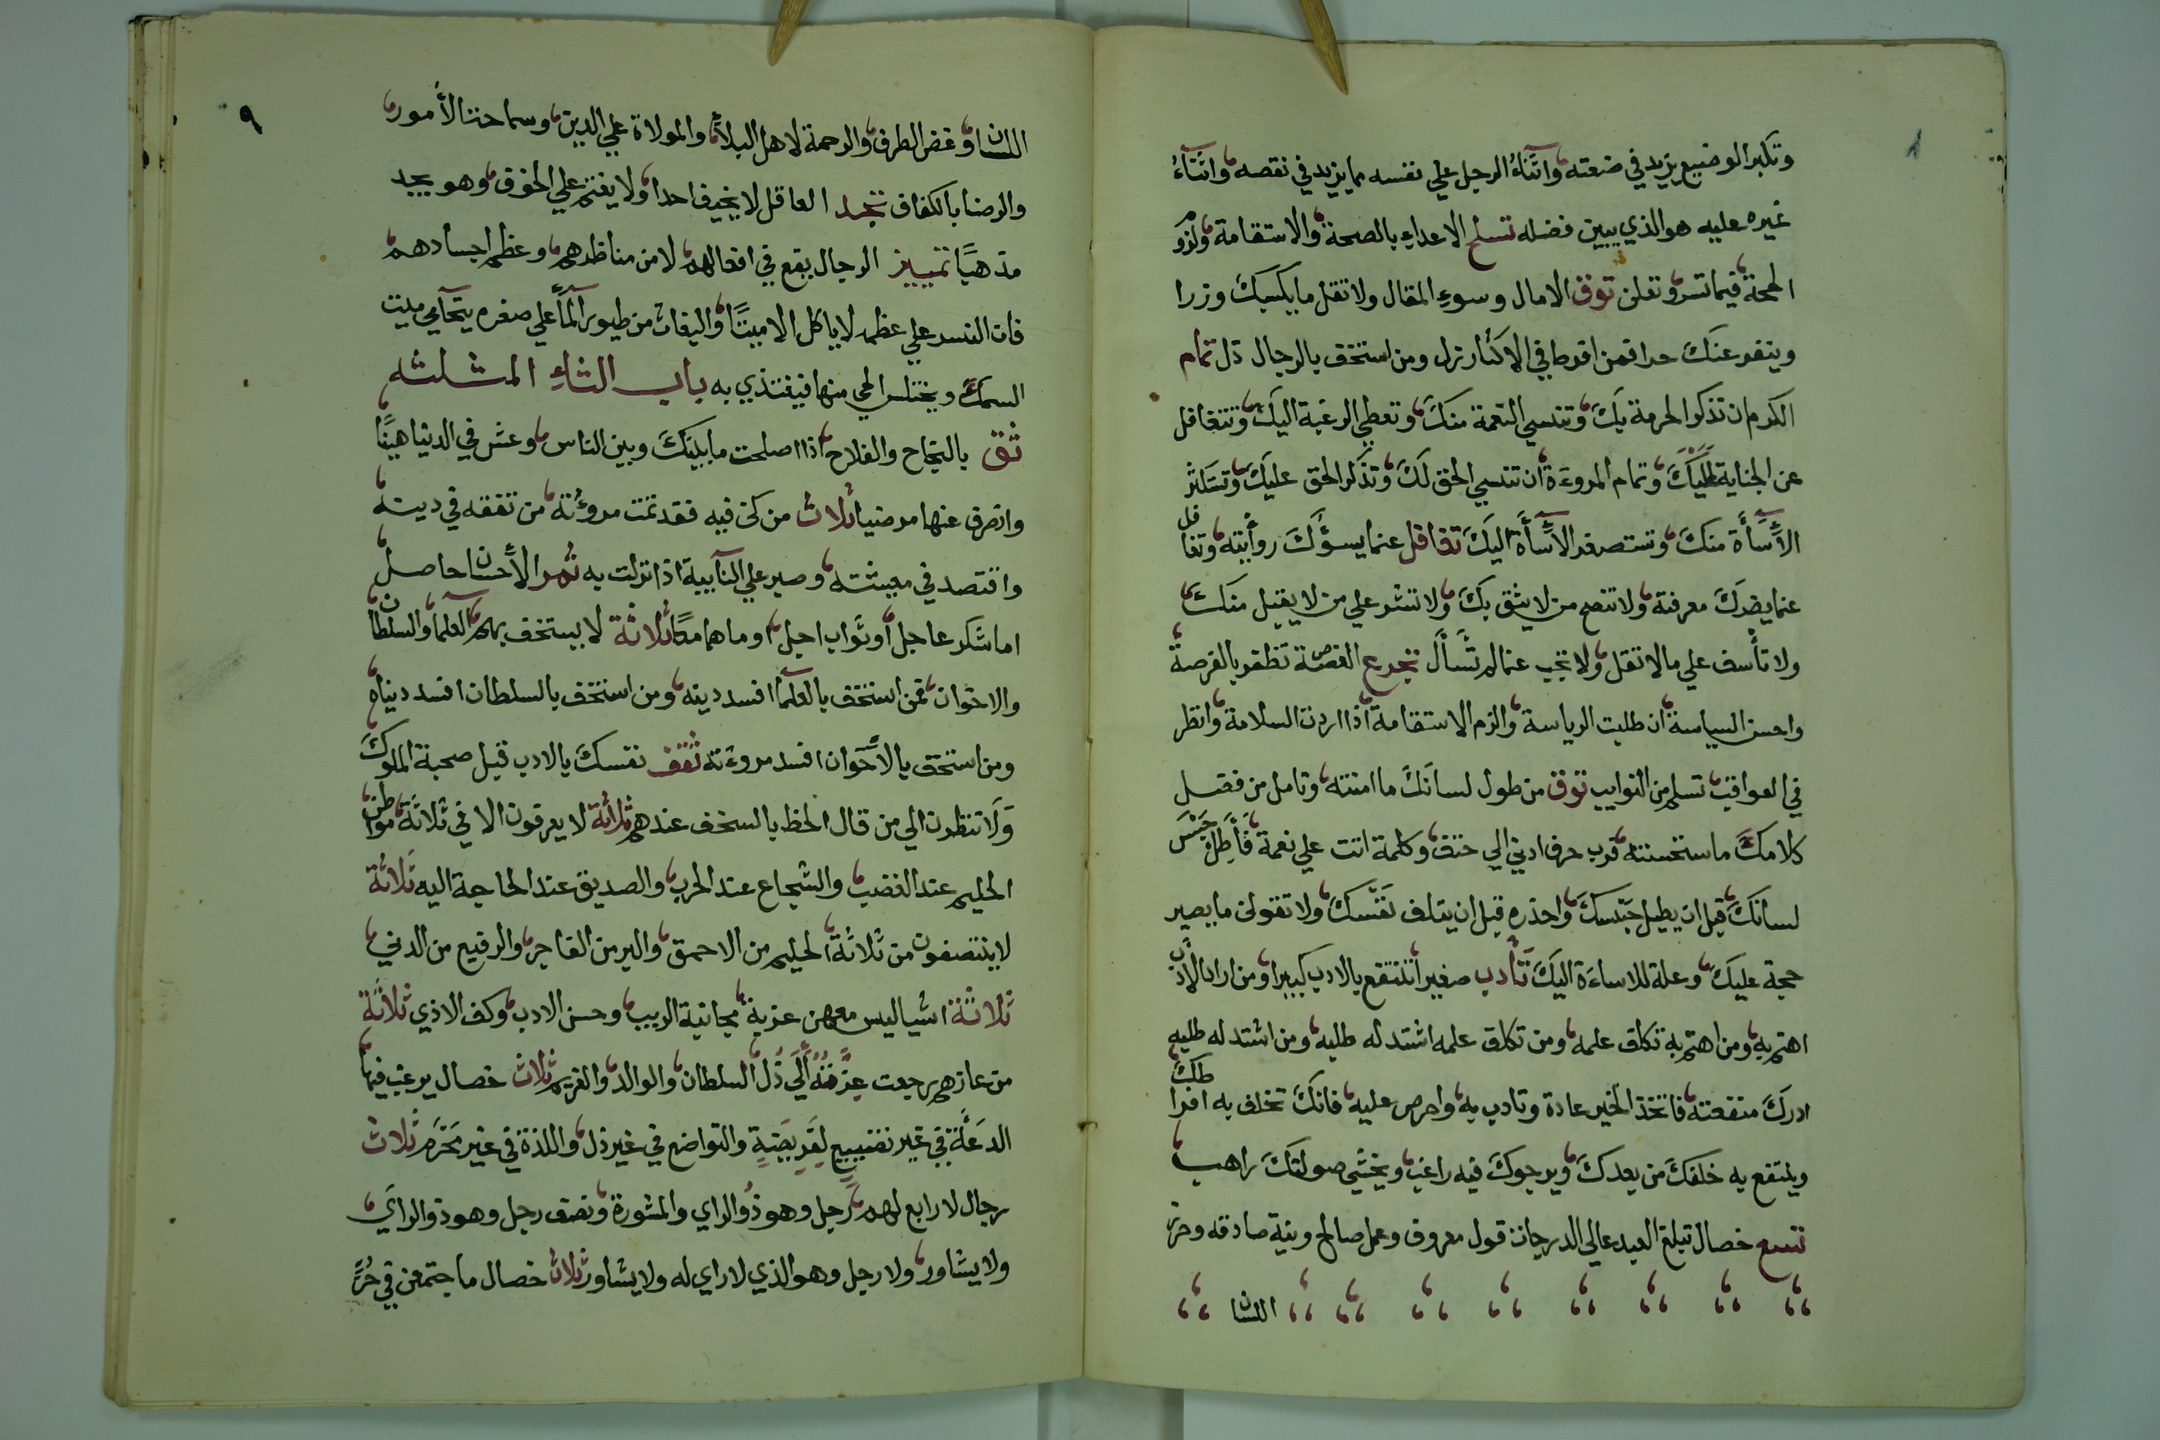 وتكبر الوضيع يزيد في ضعته واثناء الرجل علي نفسه مما يزيد في نقصه واثناء
غيره عليه هو الذي يبين فضله تسلح الاعداء بالصحة والاستقامة ولزو
المحجة فيما تسر وتعلن توق الامال وسوء المقال ولا تقل ما يكسبك وزرا
وينفر عنك حرا فمن افرط في الاكثار زل ومن استخف بالرجال ذل تمام
الكرم ان تذكر الحرمة بك وتنسي النعمة منك وتعطي الرغبة اليك وتتغافل
عن الجناية عليك وتمام المروءة ان تنسي الحق لك وتذكر الحق عليك وتستكثر
الأسأة منك وتستصغر الأسأة اليك تغافل عنما يسؤك روأيته وتغافل
عنما يضرك معرفته ولا تنصح من لا يثق بك ولا تشر علي من لا يقبل منك
ولا تأسف علي مالا تقل ولا تجب عنما لم تسأل تجرع الغصة تظفر بالفرصة
واحسن السياسة ان طلبت الرياسة والزم الاستقامة اذا اردت السلامة وانظر
في العواقب تسلم من النوايب توق من طول لسانك ما امنته وتامل من فضل
كلامك ما ستحسنته فرب حرف ادني الي حتف وكلمة اتت علي نعمة فأطل حبس
لسانك قبل ان يطيل حبسك واحذره قبل ان يتلف نفسك ولا تقولن ما يصير
حجة عليك وعلة للاساءة اليك تأدب صغيرا تنتفع بالادب كبيرا ومن اراد الأدب
اهتم به ومن اهتم به تكلف علمه ومن تكلف علمه اشتد له طلبه ومن اشتد له طلبه
ادرك منفعته فاتخذ الخير عادة وتادب به واحرص عليه فانك تخلف به افرا طك
وينتفع به خلفك من بعدك ويرجوك فيه راغب ويخشي صولتك راهب
تسع خصال تبلغ العبد عالي الدرجات قول معروف وعمل صالح ونية صادقه وحزن
اللسان
٩
اللسان وغض الطرف والرحمة لاهل البلأ والمولاة علي الدين وسماحت الأمور
والرضا بالكفاف تجد العاقل لا يخيف احدا ولا يفتم علي الخوف وهو يجد
مذهبا تمييز الرجال يقع في افعالهم لا من مناظرهم وعظم اجسادهم
فان النسر علي عظمه لا ياكل الا ميتا واليغاث من طيور المأ علي صغره يتحامي ميت
السمك ويختلس الحي منها فيغتذي به باب الثاء المثلثه
ثق بالنجاح والفلاح اذا اصلحت ما بينك وبين الناس وعش في الدنيا هينا
وانصرف عنها مرضيا ثلاث من كن فيه فقد تمت مروءته من تفقه في دينه
واقتصد في معيشته وصبر علي النآيبة اذا نزلت به ثمر الأحسان حاصل
اما شكر عاجل أو ثواب اجل او ما هما معًا ثلاثة لا يستخف بهم العلما والسلطان
والاخوان فمن استخف بالعلمآ افسد دينه ومن استخف بالسلطان افسد دنياه
ومن استخف بالأخوان افسد مروءته ثقف نفسك بالادب قبل صحبة الملوك
ولا تنظرن الي من قال الحظ بالسخف عندهم ثلاثة لا يعرفون الا في ثلاثة مواطن
الحليم عند الغضب والشجاع عند الحرب والصديق عند الحاجة اليه ثلاثة
لا ينتصفون من ثلاثة الحليم من الاحمق والبر من الفاجر والرفيع من الدني
ثلاثة اشيا ليس معهن غربة مجانبة الريب وحسن الادب وكف الاذي ثلاثة
من عازهم رجعت عزته الي ذل السلطان والوالد والغريم ثلاث خصال يرغب فيها
الدعة في غير تضييع لفريضة والتواضع في غير ذل واللذة في غير محرم ثلاث
رجال لا رابع لهم رجل وهو ذو الراي والمشورة ونصف رجل وهو ذو الراي
ولا يشاور ولا رجل وهو الذي لا راي له ولا يشاور ثلاث خصال ما جتمعن في حر